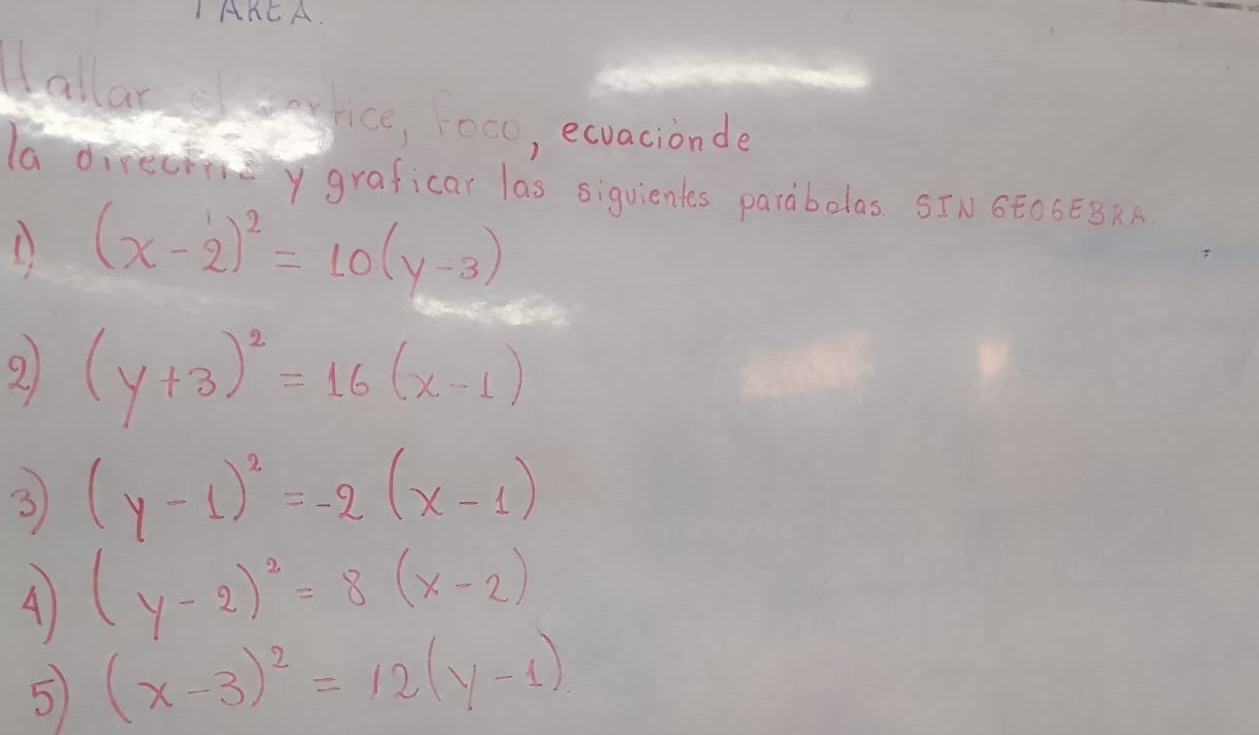 TAREA.
Hallar el vertice, foco, ecuaciónde
la directriz y graficar las siguientes parábolas. SIN GEOGEBRA.
1) (x-2)² = 10(y-3)
2) (y+3)² = 16(x-1)
3) (y-1)² = -2(x-1)
4) (y-2)² = 8(x-2)
5) (x-3)² = 12(y-1).